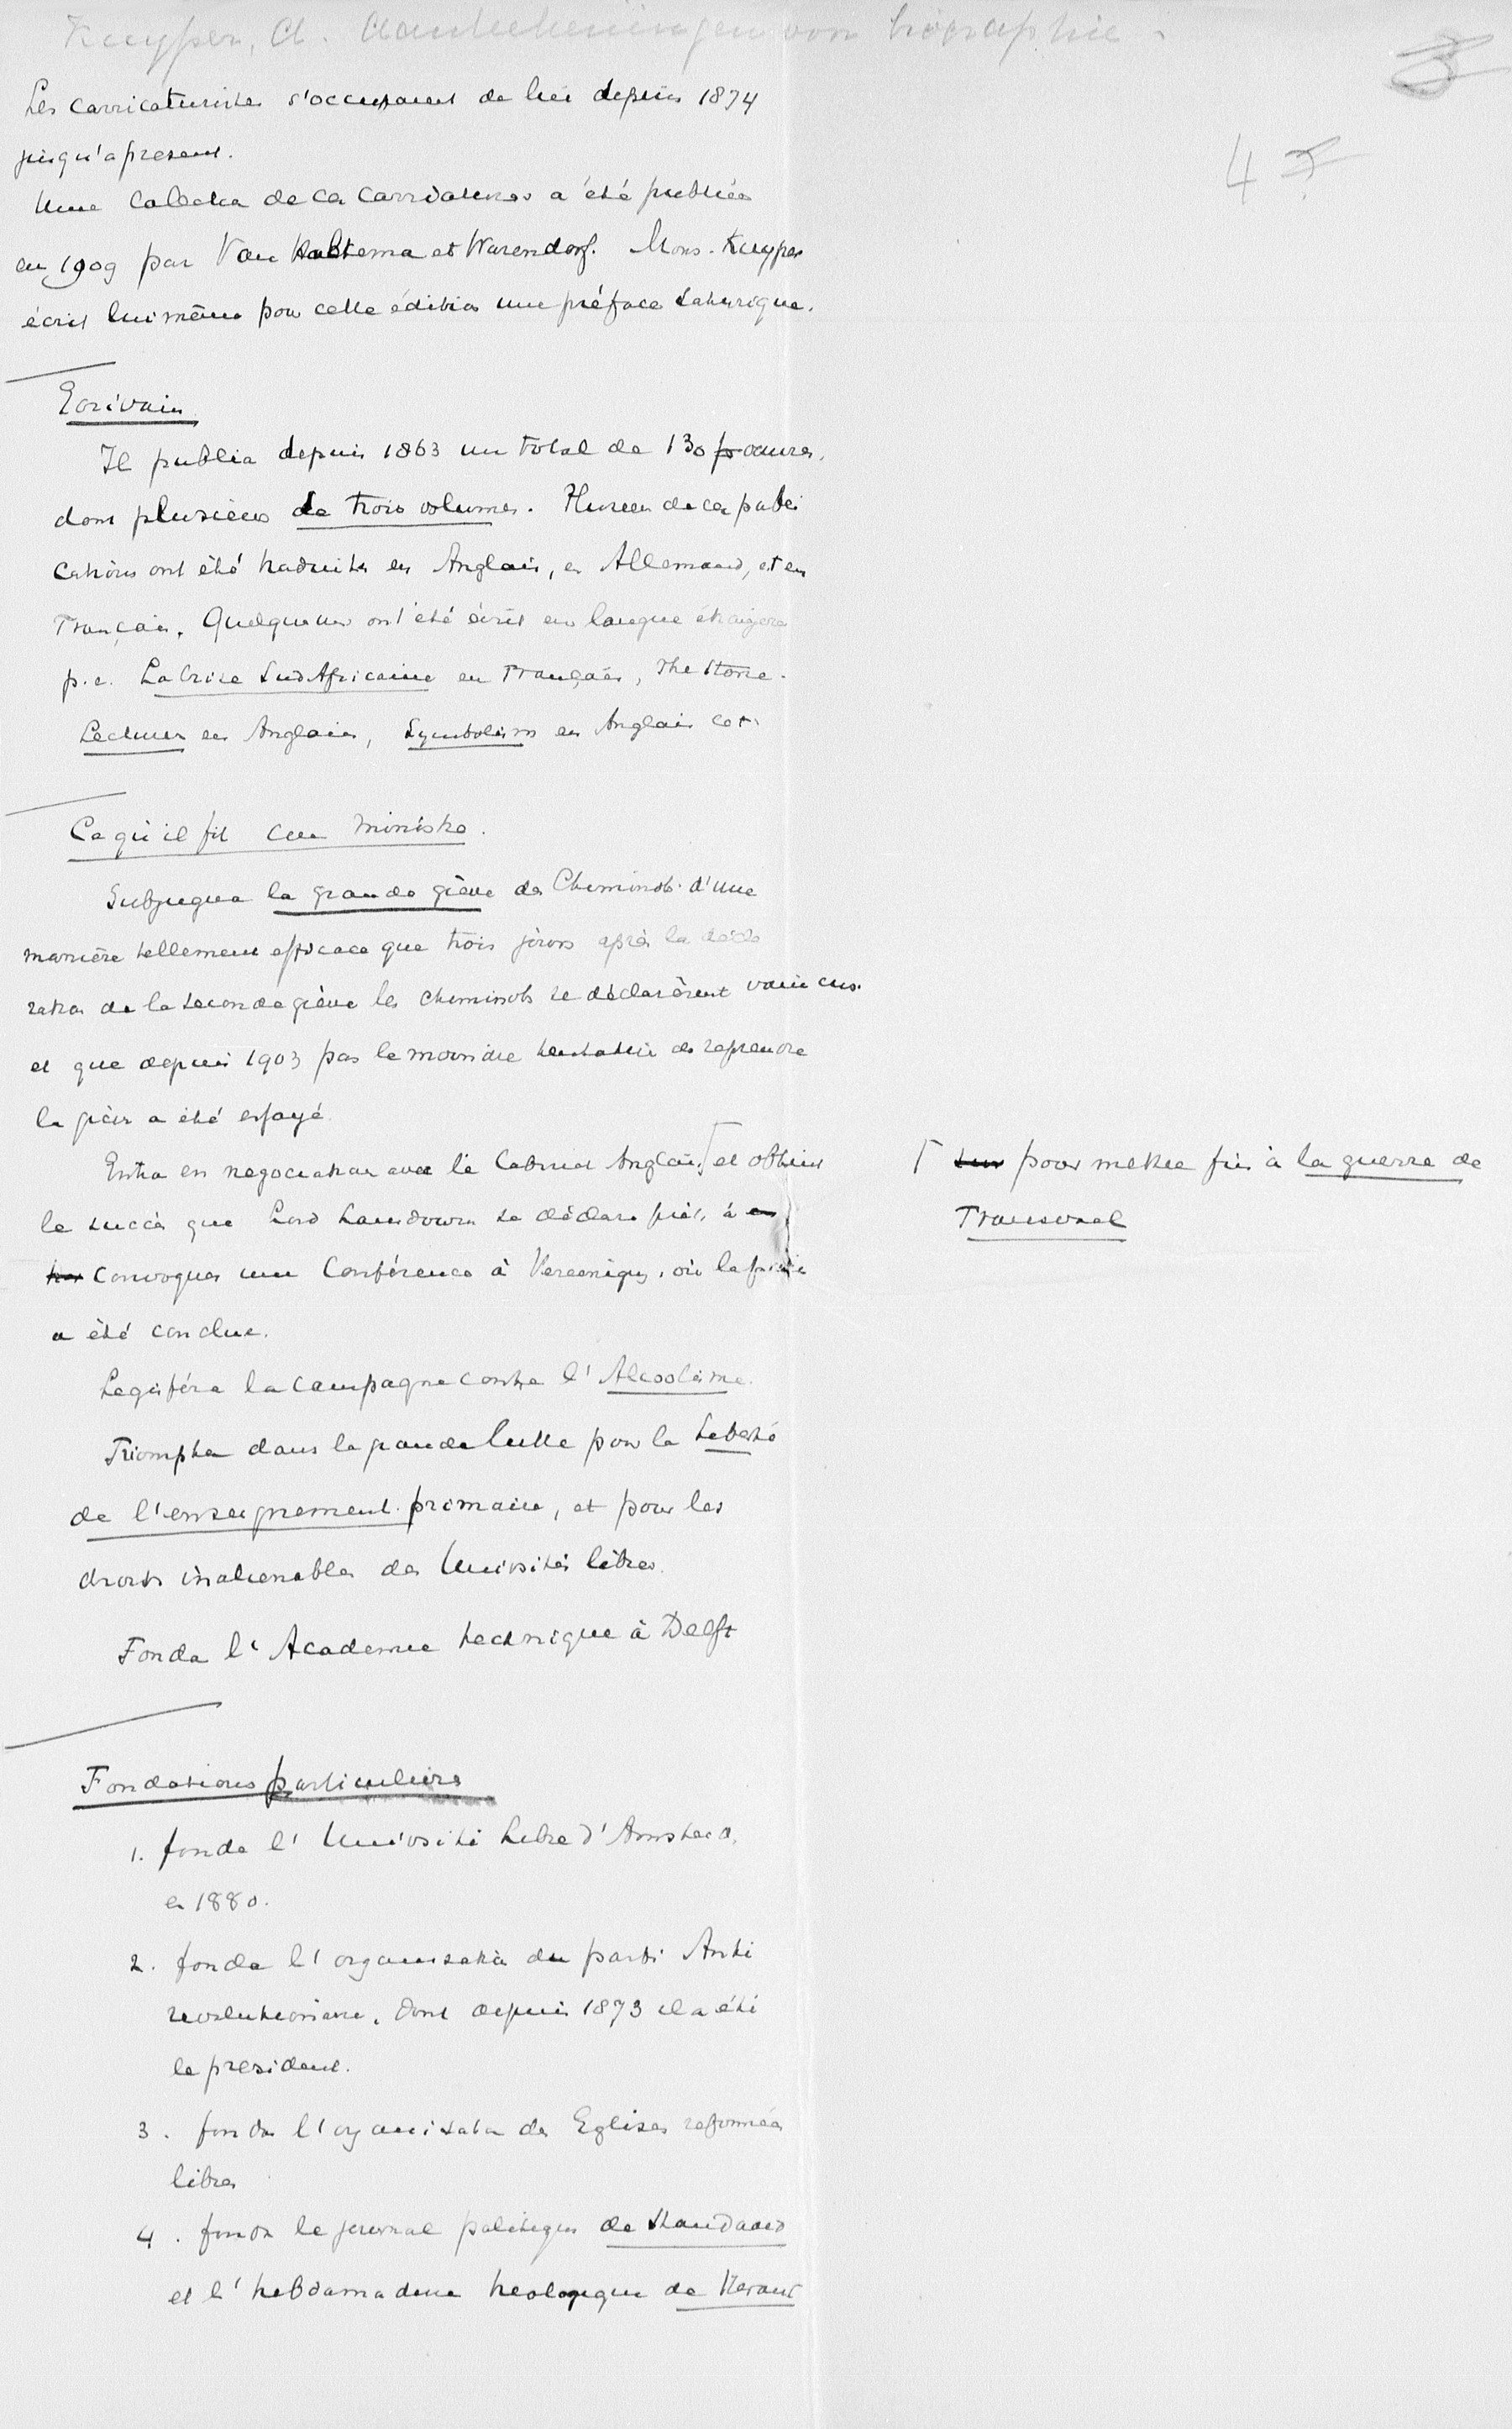 Kuyper, A. Aanteekeningen voor biographie.
3
4 3
Les carricaturistes s'occupaient de lui depuis 1874
jusqu'a present.
Une collection de ces carricatures a été publiée
en 1909 par Van Holkema et Warendorf. Mons. Kuyper
écrit lui même pour cette édition une préface satyrique.
Ecrivain
Il publia depuis 1863 un total de 130 oeuvres,
dont plusieurs de trois volumes. de ces publi
cations ont été traduites en Anglais, en Allemand, et en
Français. Quelques unes ont été écrit en langue étrangère
p.e. La Crise SudAfricaine en Français, The Stone-
Lectures en Anglais, Symbolism en Anglais cet.
Ce qu'il fit comme Ministre.
Subjugua la grande grève des Cheminots d'une
manière tellement efficace que trois jours après la décla
ration de la seconde grève les cheminots se déclarèrent vaincus.
et que depuis 1903 pas le moindre tentative de reprendre
la grève a été essayé.
Entra en negociation avec le Cabinet Anglais ⌈ et obtint
⌈ pour mettre fin à la guerre de
Transvaal
le succès que Lord Lansdowne se déclara prêt à
convoquer une Conférence à Vereeniging, où la paix
a été conclue.
Legiféra la campagne contre l'Alcoolisme.
Triompha dans la grande lutte pour la Liberté
de l'enseignement primaire, et pour les
droits inalienables des Universités libres.
Fonda l'Academie technique à Delft
Fondations particulières
1. fonda l'Université Libre d'Amsterd.
en 1880.
2. fonda l'organisation du parti Anti
revolutionaire, dont depuis 1873 il a été
le president.
3. fonda l'organisation des Eglises reformées
libres
4. fonda le journal politique de Standaard
et l'hebdomadaire theologique de Heraut